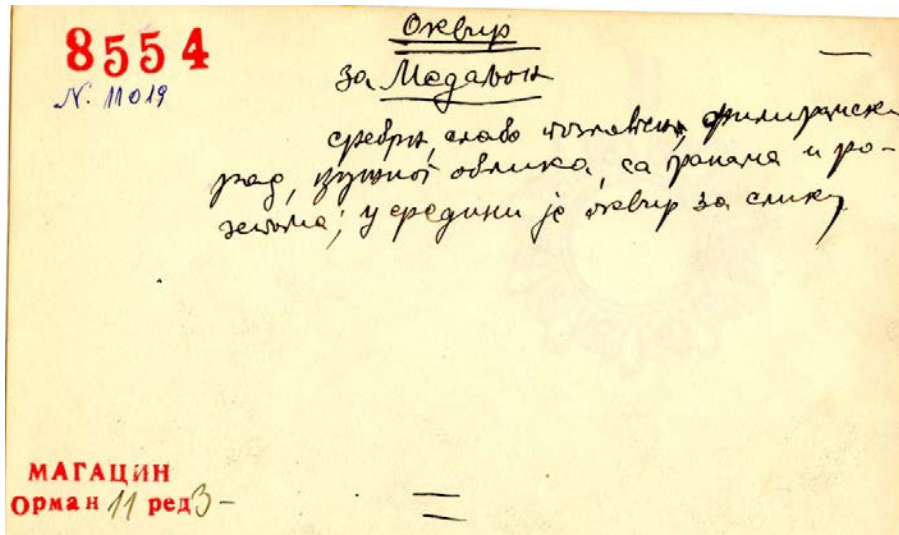 8554
N. 11019
Оквир
за Медаљон
сребрн, слабо позлаћен, филигрански
рад, кружног облика, са гранама и ро-
зетама; у средини је оквир за слику
МАГАЦИН
Орман 11 ред 3 -